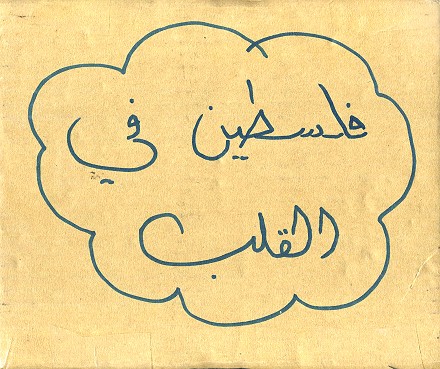 فلسطين في
القلب